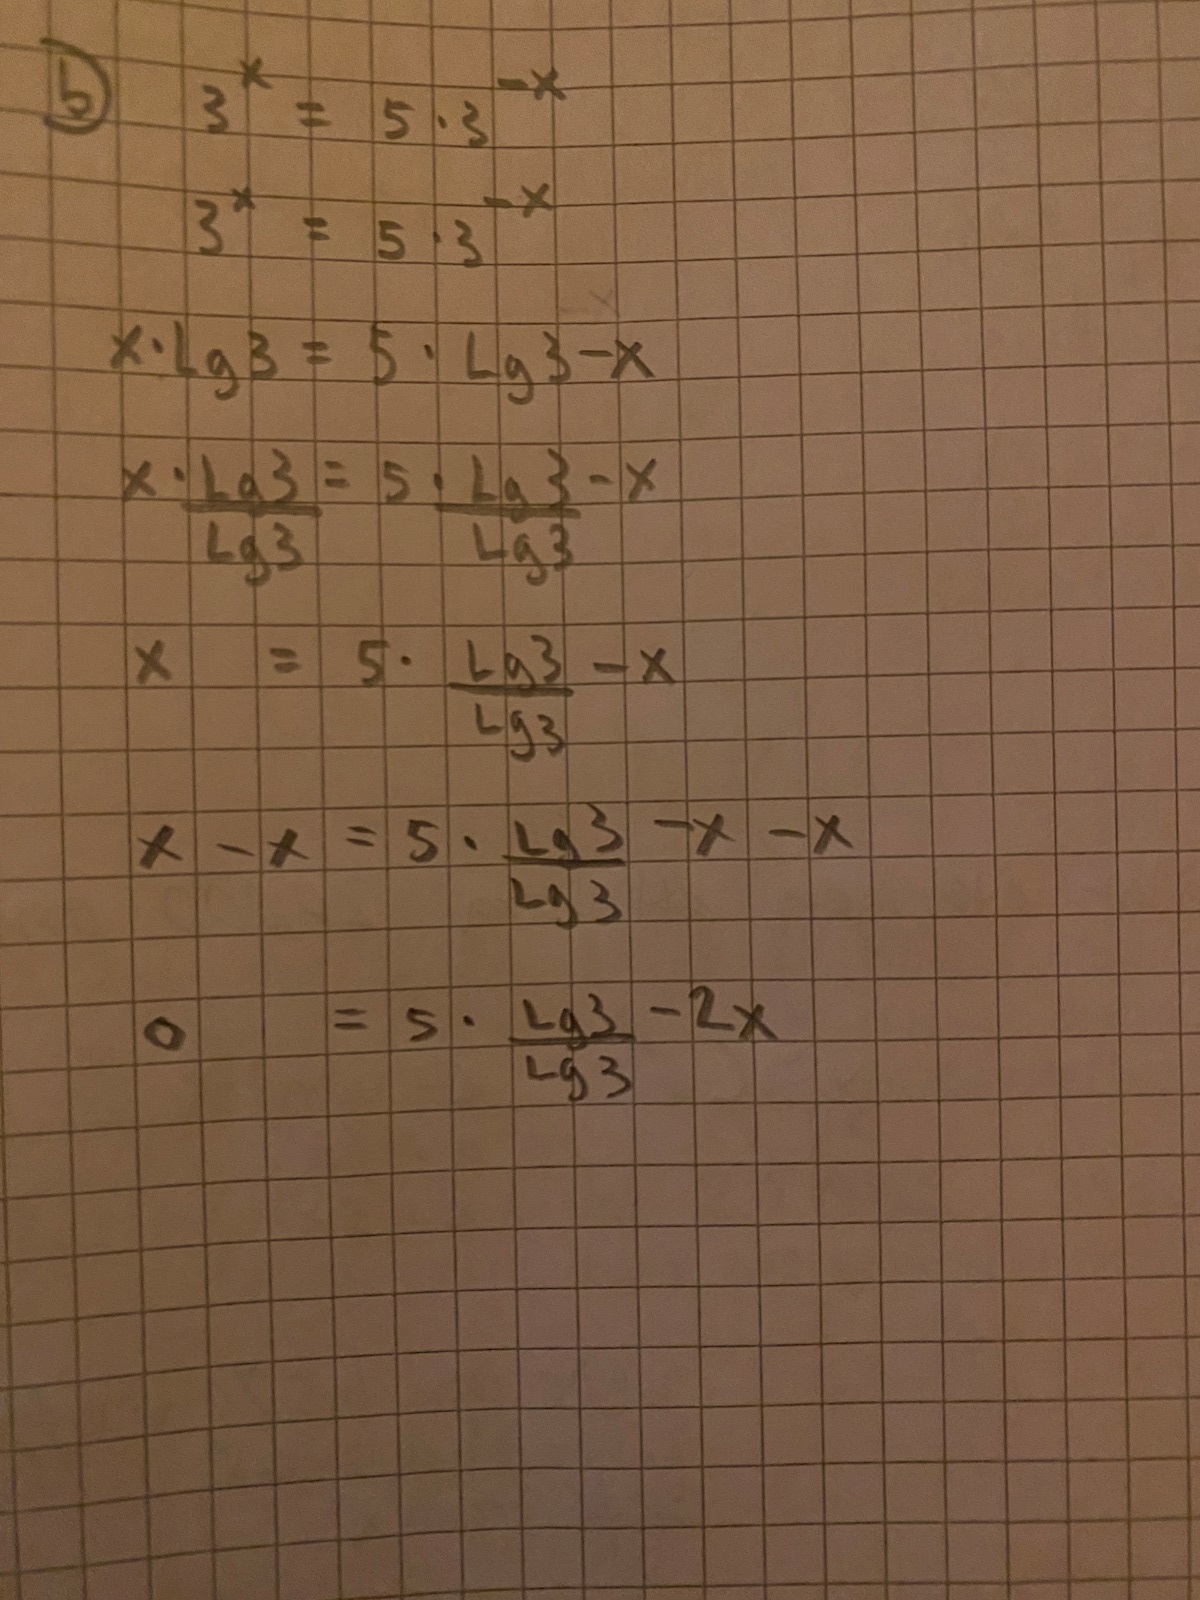 b) 3^x = 5 · 3^-x
3^x = 5 · 3^-x
x · Lg3 = 5 · Lg3 - x
x · Lg3/Lg3 = 5 · Lg3/Lg3 - x
x = 5 · Lg3/Lg3 - x
x - x = 5 · Lg3/Lg3 - x - x
0 = 5 · Lg3/Lg3 - 2x